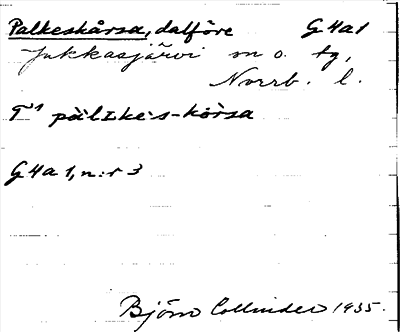 Palkeskårsa, dalföre G4a1
Jukkasjärvi sn o. tg,
Norrb. l.
T¹ pàlɪke:s-kòrsa
G4a1, n:r 3
Björn Collinder 1935.